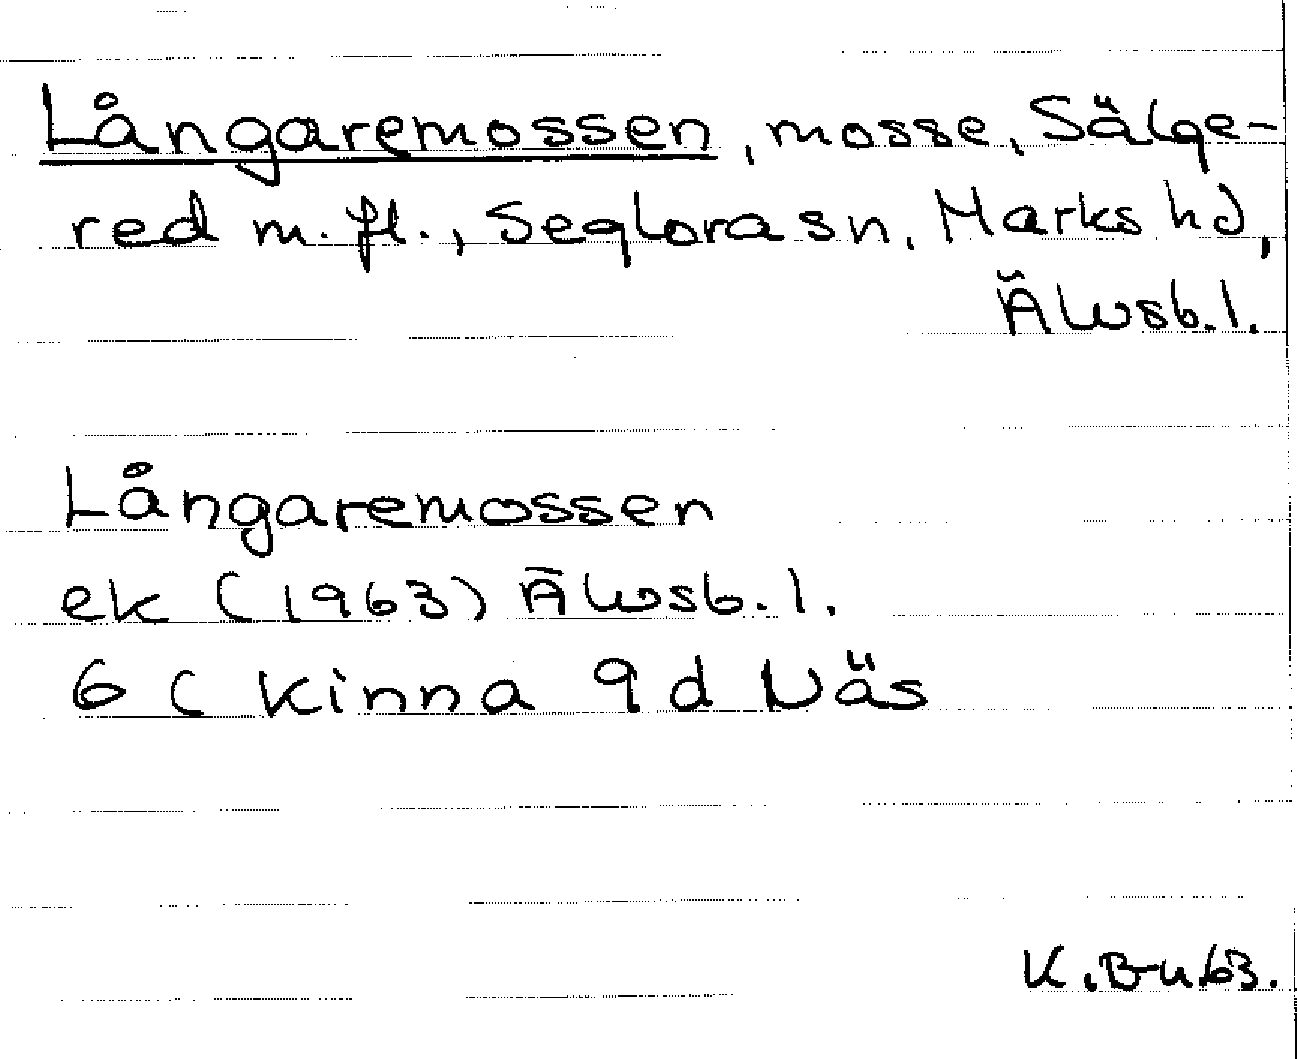 Långaremossen, mosse, Sälge-
red m.fl., Seglora sn, Marks hd,
Älvsb.l.
Långaremossen
ek (1963) Älvsb.l.
6 C Kinna 9 d Näs
K. Bn 63.